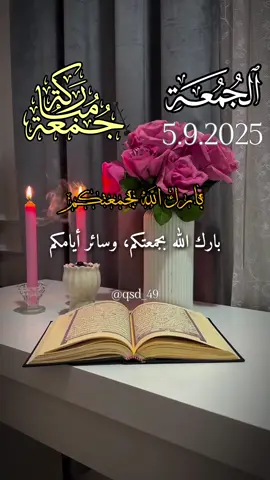 ٱلْجُمُعَة
جُمُعَة مُبارَكَة
5.9.2025
بَارَكَ اللهُ بِجُمعَتِكُم
بارك الله بجمعتكم، وسائر أيامكم
@qsd_49